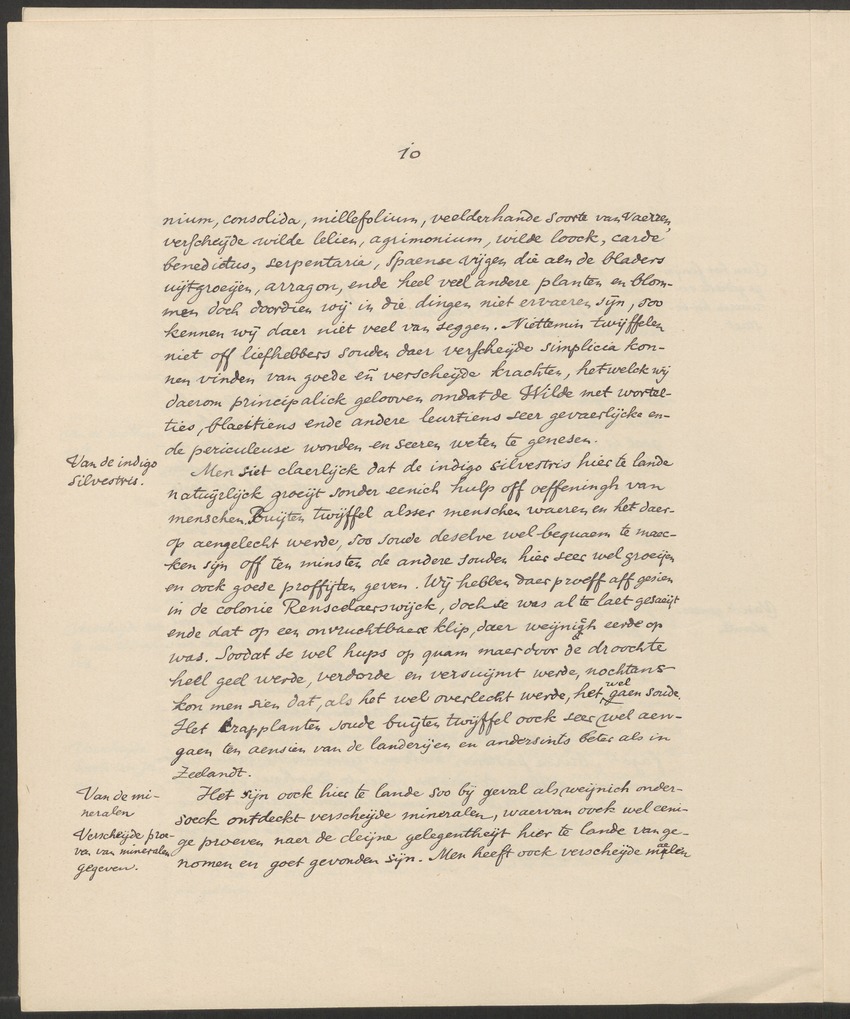 10
nium, consolida, millefolium, veelderhande soorte van vaeren,
verscheijde wilde lelien, agrimonium, wilde loock, carde
benedictus, serpentaria, Spaense vijgen die aen de bladers
uijtgroeijen, arragon, ende heel veel andere planten en blom-
men doch doordien wij in die dingen niet ervaeren sijn, soo
kennen wij daer niet veel van seggen. Niettemin twijffelen
niet off liefhebbers souden daer verscheijde simplicia kon-
nen vinden van goede en̄ verscheijde krachten, hetwelck wij
daerom principalick gelooven omdat de Wilde met wortel-
ties, blaettiens ende andere leurtiens seer gevaerlijcke en-
de periculeuse wonden en seeren weten te genesen.
Van de indigo
silvestris.
Men siet claerlijck dat de indigo silvestris hier te lande
natuijrlijck groeijt sonder eenich hulp off oeffeningh van
menschen. Buijten twijffel alsser menschen waeren en het daer-
op aengelecht werde, soo soude deselve wel bequaem te maec-
ken sijn off ten minsten de andere souden hier seer wel groeijen
en oock goede proffijten geven. Wij hebben daer proeff aff gesien
in de colonie Renselaerswijck, doch se was al te laet gesaeijt
ende dat op een onvruchtbaere klip, daer weijnigh eerde op
was. Soodat se wel hups op quam maer door de droochte
heel geel werde, verdorde en versuijmt werde, nochtans
kon men sien dat, als het wel overlecht werde, het wel gaen soude.
Het crapplanten soude buijten twijffel oock seer wel aen-
gaen ten aensien van de landerijen en andersints beter als in
Zeelandt.
Van de mi-
neralen
Verscheijde proe-
ven van mineralen
gegeven.
Het sijn oock hier te lande soo bij geval als weijnich onder-
soeck ontdeckt verscheijde mineralen, waervan oock wel eeni-
ge proeven naer de cleijne gelegentheijt hier te lande van ge-
nomen en goet gevonden sijn. Men heeft oock verscheijde maelen